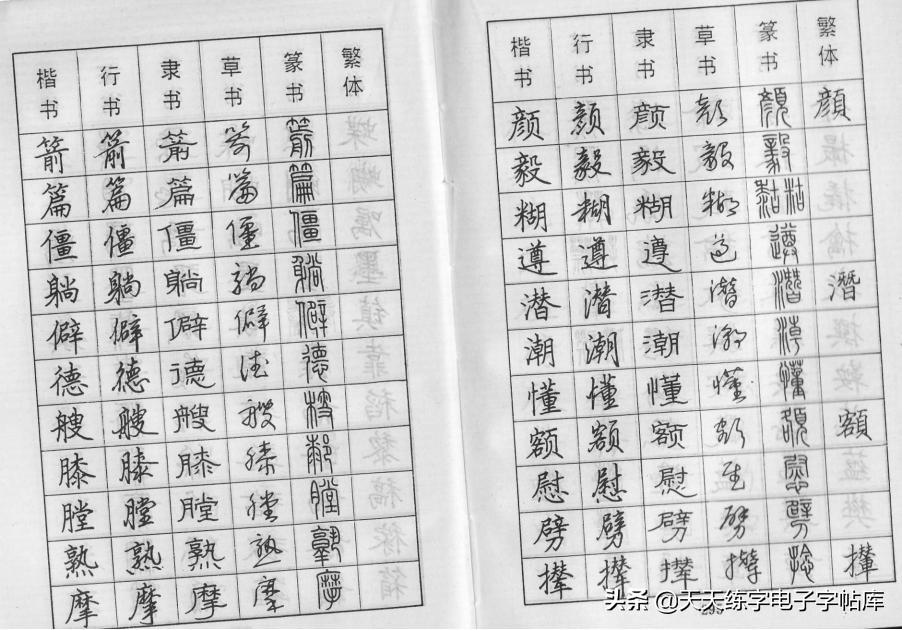 楷书 行书 隶书 草书 篆书 繁体
箭 箭 箭 箭 箭
篇 篇 篇 篇 篇
僵 僵 僵 僵 僵
躺 躺 躺 躺 躺
僻 僻 僻 僻 僻
德 德 德 德 德
艘 艘 艘 艘
膝 膝 膝 膝
膛 膛 膛 膛 膛
熟 熟 熟 熟
摩 摩 摩 摩 摩
楷书 行书 隶书 草书 篆书 繁体
颜 颜 颜 颜 顔 顔
毅 毅 毅 毅 毅
糊 糊 糊 糊
遵 遵 遵 遵 遵
潜 潜 潜 潜 潛 潛
潮 潮 潮 潮
懂 懂 懂 懂 懂
额 额 额 额 額
慰 慰 慰 慰 慰
劈 劈 劈 劈 劈
撵 撵 撵 撵 攆
头条 @天天练字电子字帖库